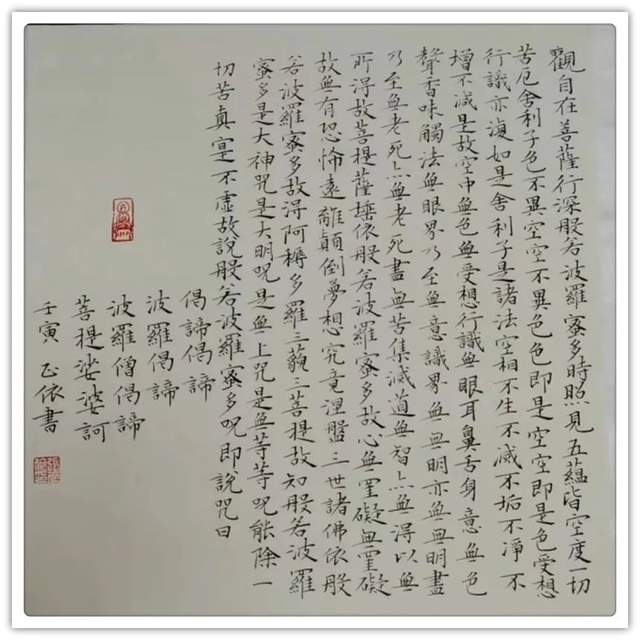 觀自在菩薩行深般若波羅蜜多時照見五蘊皆空度一切
苦厄舍利子色不異空空不異色色即是空空即是色受想
行識亦復如是舍利子是諸法空相不生不滅不垢不淨不
增不減是故空中無色無受想行識無眼耳鼻舌身意無色
聲香味觸法無眼界乃至無意識界無無明亦無無明盡
乃至無老死亦無老死盡無苦集滅道無智亦無得以無
所得故菩提薩埵依般若波羅蜜多故心無罣礙無罣礙
故無有恐怖遠離顛倒夢想究竟涅盤三世諸佛依般
若波羅蜜多故得阿耨多羅三藐三菩提故知般若波羅
蜜多是大神咒是大明呪是無上咒是無等等呪能除一
切苦真寔不虛故說般若波羅蜜多呪即說咒曰
偈諦偈諦
波羅偈諦
波羅僧偈諦
菩提娑婆訶
壬寅 正依書